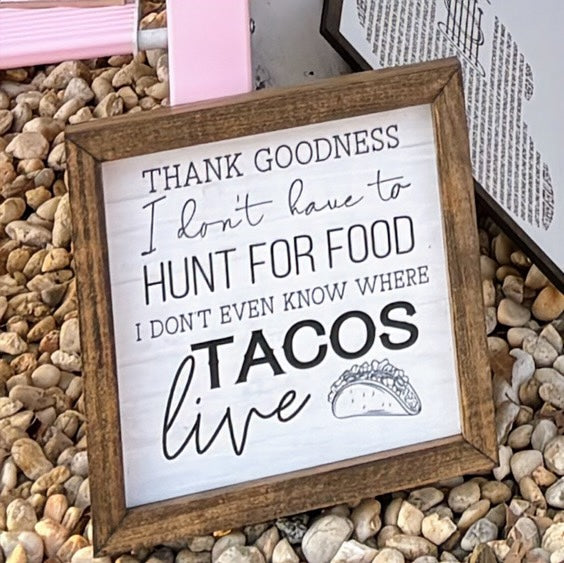 THANK GOODNESS
I don't have to
HUNT FOR FOOD
I DON'T EVEN KNOW WHERE
TACOS
live